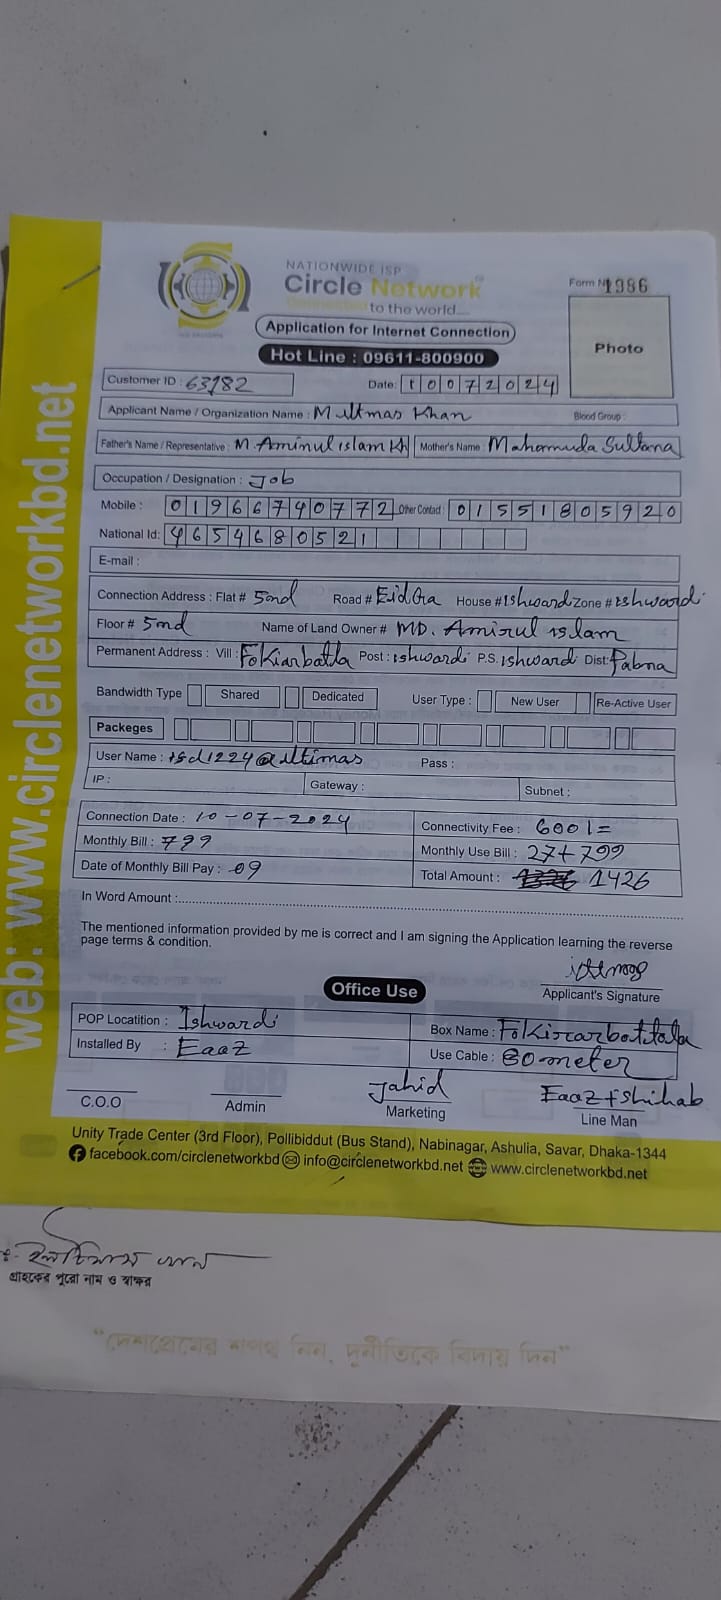 web: www.circlenetworkbd.net
NATIONWIDE ISP
Circle Network
Connected to the world....
Form N 1986
Application for Internet Connection
Hot Line : 09611-800900
Photo
Customer ID : 63182
Date: 10072024
Applicant Name / Organization Name : M. Khan
Blood Group :
Father's Name / Representative : M. Aminul islam Kh
Mother's Name : Mahamuda Sultana
Occupation / Designation : Job
Mobile : 01966740772
Other Contact : 01551805920
National Id: 4654680521
E-mail :
Connection Address : Flat # 5nd Road # EidGa House # Ishwardi Zone # Eshwardi
Floor # 5nd Name of Land Owner # MD. Amirul islam
Permanent Address : Vill : Post : ishwardi P.S. ishwardi Dist: Pabna
Bandwidth Type Shared Dedicated User Type : New User Re-Active User
Packeges
User Name : Pass :
IP : Gateway : Subnet :
Connection Date : 10-07-2024
Connectivity Fee : 600/=
Monthly Bill : 799
Monthly Use Bill : 27+799
Date of Monthly Bill Pay : 09
Total Amount : 1426
In Word Amount :
The mentioned information provided by me is correct and I am signing the Application learning the reverse
page terms & condition.
Applicant's Signature
Office Use
POP Locatition : Ishwardi
Box Name :
Installed By : Eaaz
Use Cable : meter
Jahid
Eaaz + Shihab
C.O.O
Admin
Marketing
Line Man
Unity Trade Center (3rd Floor), Pollibiddut (Bus Stand), Nabinagar, Ashulia, Savar, Dhaka-1344
facebook.com/circlenetworkbd info@circlenetworkbd.net www.circlenetworkbd.net
ইলতিমাস খান
গ্রাহকের পুরো নাম ও স্বাক্ষর
"দেশপ্রেমের শপথ নিন, দুর্নীতিকে বিদায় দিন"